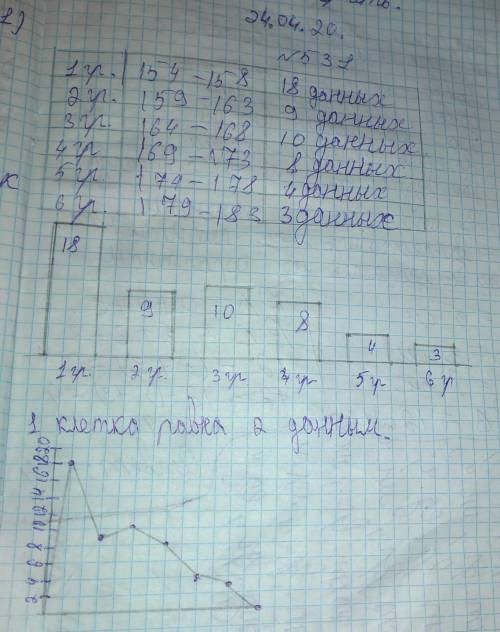 24.04.20.
№531
1 гр. 154-158 18 данных
2 гр. 159-163 9 данных
3 гр. 164-168 10 данных
4 гр 169-173 8 данных
5 гр. 174-178 4 данных
6 гр. 179-183 3 данных
18 9 10 8 4 3
1 гр. 2 гр. 3 гр 4 гр 5 гр 6 гр
1 клетка равна 2 данным.
20
18
16
14
12
10
8
6
4
2